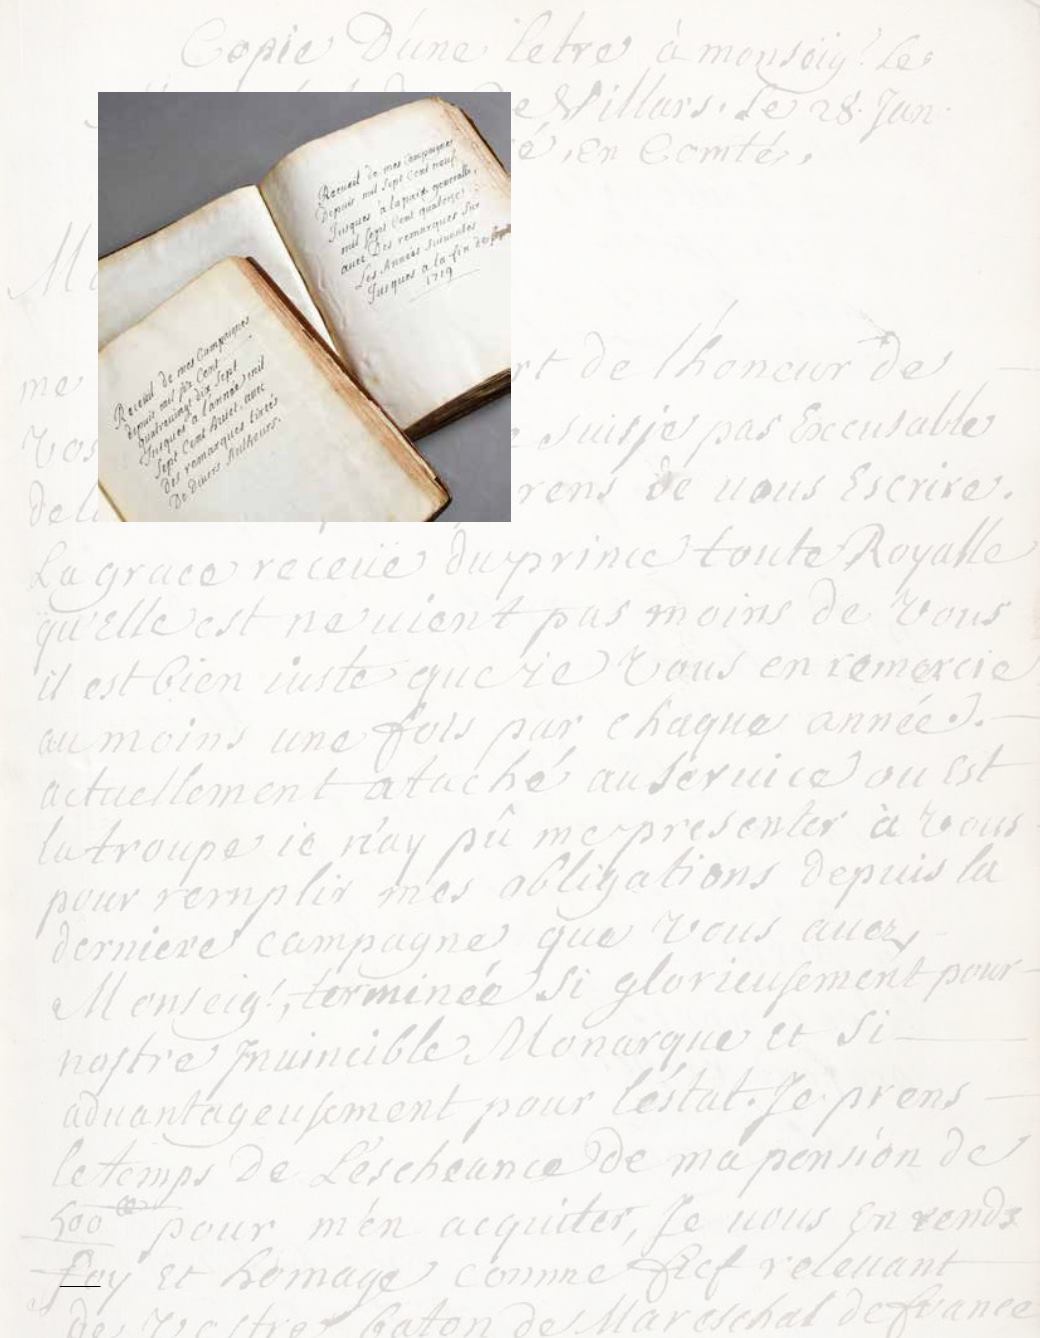 Copie D'une letre à monseig.r Le
De Villars. Le 28. Jan.
é, en Comté,
Recueil de mes Campagnes
Depuis mil sept Cent neuf
Jusques a la paix generalle,
mil sept Cent quatorze,
avec Des remarques sur
Les Années suivantes
Jusques a la fin de
1719
Recueil de mes Campagnes
depuis mil six Cent
quatrevingt dix sept
Jusques a l'année mil
sept Cent huict, avec
des remarques tirées
De Divers Autheurs.
me rt de lhoneur des
Vos e suisje pas Excusable
de la rens de uous Escrire.
La grace receüe du prince toute Royalle
qu'elle est ne uient pas moins de Vous
il est bien iuste que ie Vous en remercie
au moins une fois par chaque année.
actuellement ataché au seruice ou est
la troupe ie n'ay pû me presenter à Vous
pour remplir mes obligations depuis la
derniere campagne que Vous auez,
Monseig.r, terminée si glorieusement pour
nostre Inuincible Monarque et si
aduantageusement pour l'estat. Je prens
le temps de L'escheance de ma pension de
500 pour m'en acquitter, Je uous En rends
foy Et homage comme fief releuant
de Vostre baton de Mareschal de france